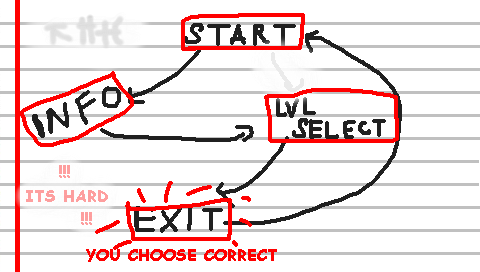 START
INFO
LVL
SELECT
!!!
ITS HARD
!!!
EXIT
YOU CHOOSE CORRECT